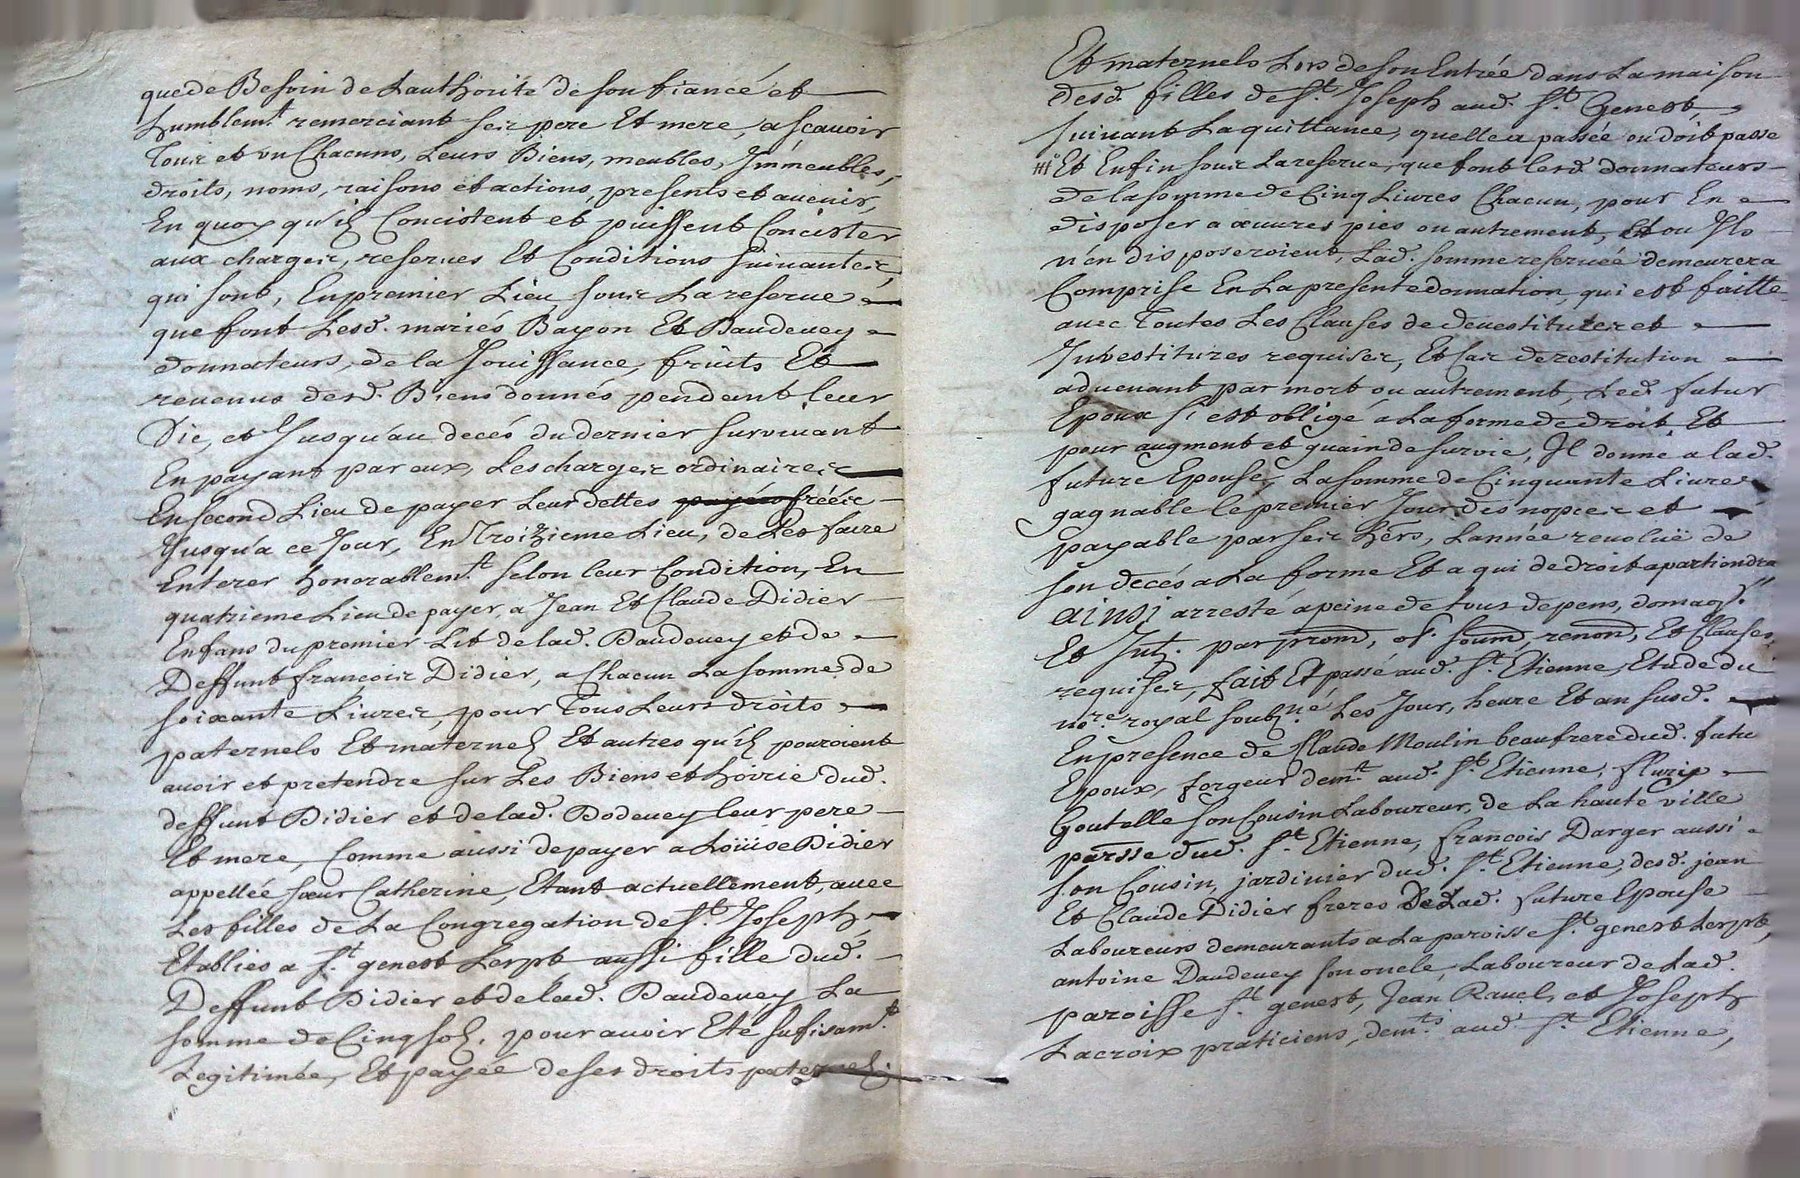 que de Besoin de Lauthorité de son fiancé et
humblemt. remerciant ses pere Et mere, a scavoir
Tous et un Chacuns, Leurs Biens, meubles, Immeubles,
droits, noms, raisons et actions, presents et avenir,
En quoy qu'ilz Concistent et puissent Concister
aux charges, reserves Et Conditions suivantes,
qui sont, En premier Lieu sous La reserve
que font Lesd. mariés Bayon Et Baudevey
donnateurs, de la Jouissance, fruits Et
revenus desd. Biens donnés pendant leur
Vie, et Jusqu'au decés du dernier survivant
En payant par eux, Les charges ordinaires
En second Lieu de payer Leur dettes créés
Jusqu'a ce Jour, En Troizieme Lieu, de Les faire
Enterer honorablemt. selon leur Condition, En
quatrieme Lieu de payer, a Jean Et Claude Didier
Enfans du premier Lit de lad. Baudevey et de
Deffunt francois Didier, a Chacun La somme de
soixante Livres, pour Tous Leurs droits
paternels Et maternelz Et autres qu'ilz pouroient
avoir et pretendre sur Les Biens et hoirie dud.
deffunt Didier et de lad. Bodevey leur pere
Et mere, Comme aussi de payer a Loüise Didier
appellée sœur Catherine, Etant actuellement, avec
Les filles de La Congregation de St. Joseph,
Etablies a St. genest Lerpt aussi fille dud.
Deffunt Didier et de lad. Baudevey La
somme de Cinq solz, pour avoir Eté sufisamt.
Legitimée, Et payée de ses droits paternelz
Et maternels Lors de son Entrée dans La maison
desd. filles de St. Joseph aud. St. Genest,
suivant La quittance, quelle a passée ou doit passé
Et Enfin sous La reserve, que font lesd. donnateurs
de la somme de Cinq Livres Chacun, pour En
disposer a œuvres pies ou autrement, et ou Ils
n'en disposeroient, Lad. somme reservée demeurera
Comprise En La presente donnation, qui est faitte
avec Toutes Les Clauses de devestitutes et
Investitures requises, Et Cas de restitution
advenant par mort ou autrement, Led. futur
Epoux s'est obligé a La forme de droit Et
pour augment et guain de survie, Il donne a lad.
future Epouse, La somme de Cinquante Livres
gagnable le premier Jour des nopces et
payable par ses hers, L'année revoluë de
son decés a La forme Et a qui de droit apartiendra
ainsi arresté a peine de tous depens, domags.
Et Intz. par prom, ob. soum, renon, Et Clauses
requises, fait Et passé aud. St. Etienne, Etude du
nore. royal soubzné. Les Jour, heure Et an susd.
En presence de Claude Moulin beaufrere dud. futu
Epoux, forgeur demt. aud. St. Etienne, fleury
Goutelle son Cousin Laboureur, de La haute ville
parsse dud. St. Etienne, francois Darger aussi
son Cousin, jardinier dud. St. Etienne, desd. jean
Et Claude Didier freres De Lad. future Epouse
Laboureurs demeurants a La paroisse St. genest Lerpt,
antoine Daudevey son oncle, Laboureur de Lad.
paroisse St. genest, Jean Ravel, et Joseph
Lacroix praticiens, demts. aud. St. Etienne,